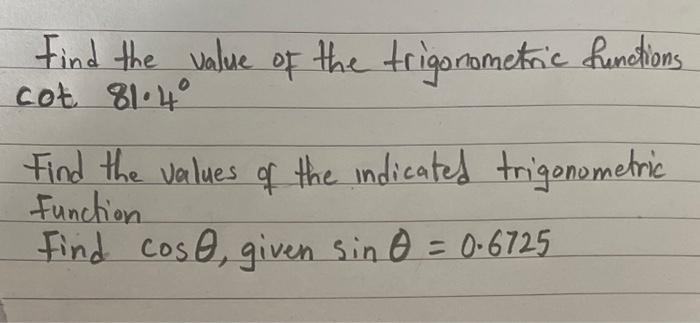 Find the value of the trigonometric functions
cot 81.4°
Find the values of the indicated trigonometric
Function
Find cosθ, given sin θ = 0.6725